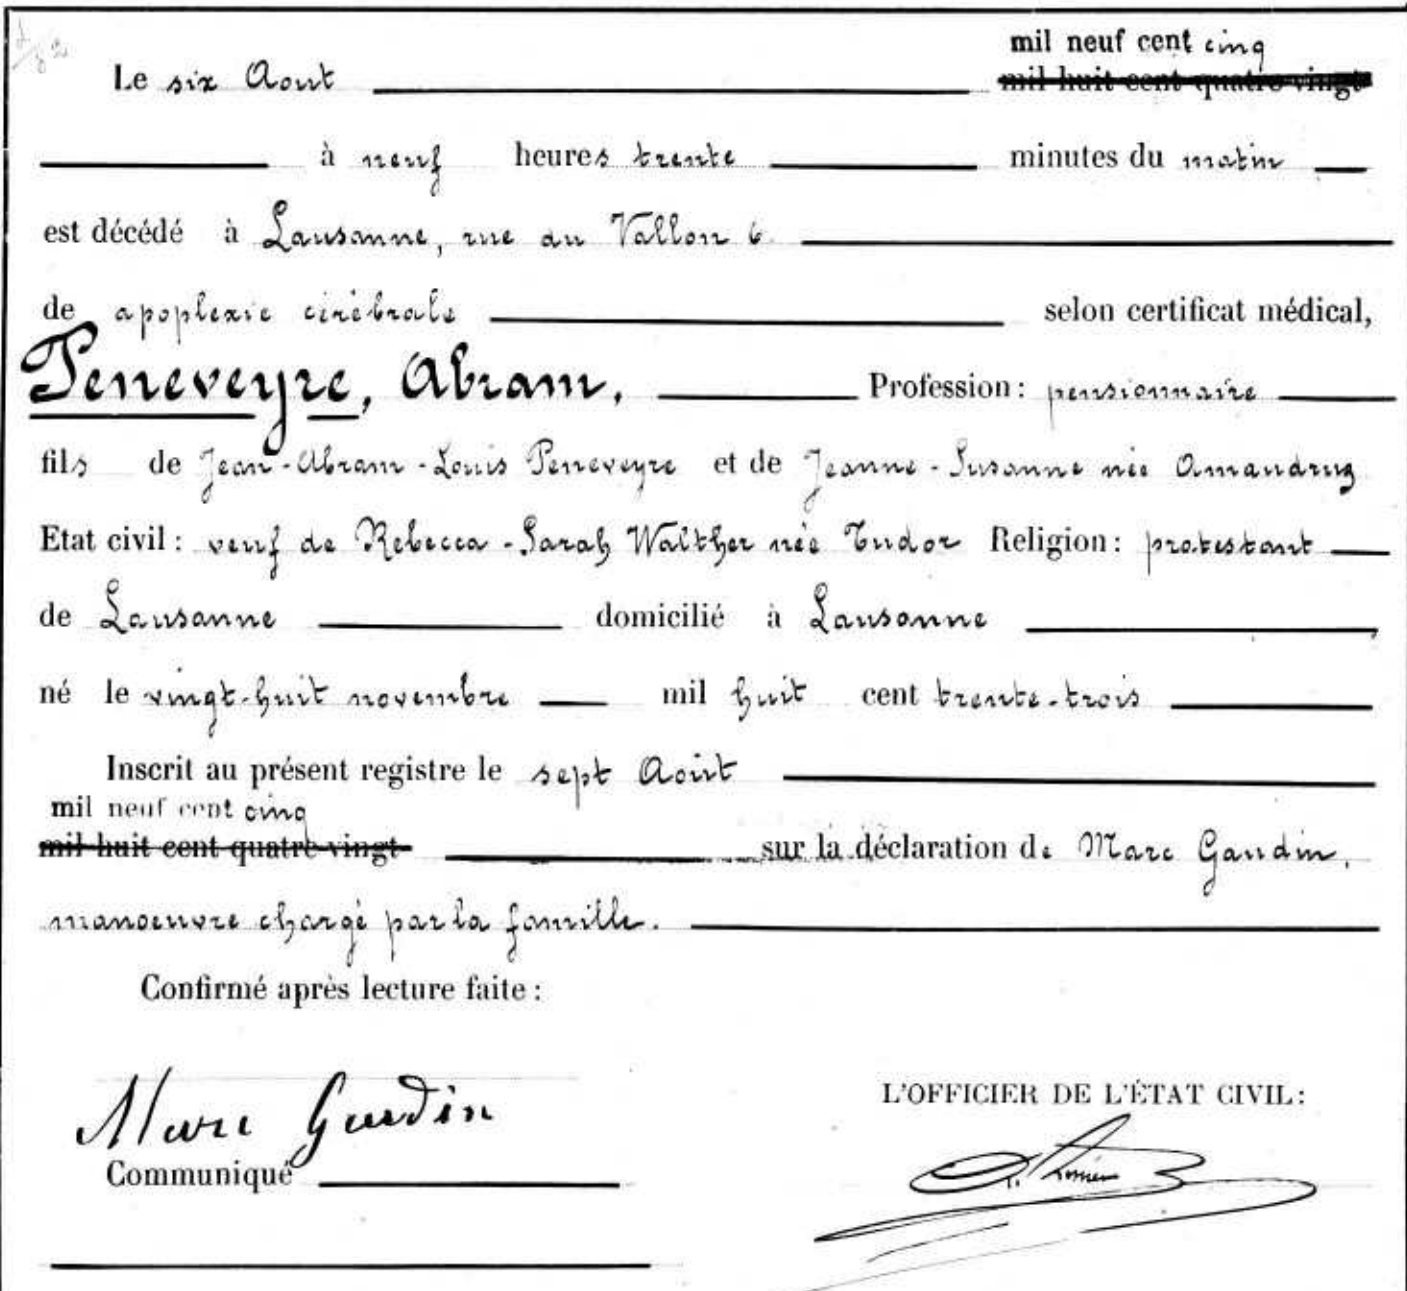 mil neuf cent cinq
Le six Aout mil huit cent quatre-vingt
à neuf heures trente minutes du matin
est décédé à Lausanne, rue du Vallon 6.
de apoplexie cérébrale selon certificat médical,
Peneveyre, Abram, Profession: pensionnaire
fils de Jean-Abram-Louis Peneveyre et de Jeanne-Susanne née Amaudruz
Etat civil: veuf de Rebecca-Sarah Walther née Tudor Religion: protestant
de Lausanne domicilié à Lausanne,
né le vingt-huit novembre mil huit cent trente-trois
Inscrit au présent registre le sept Août
mil neuf cent cinq
mil huit cent quatre-vingt- sur la déclaration de Marc Gaudin,
manoeuvre chargé par la famille.
Confirmé après lecture faite:
L'OFFICIER DE L'ÉTAT CIVIL:
Marc Gaudin
Communiqué